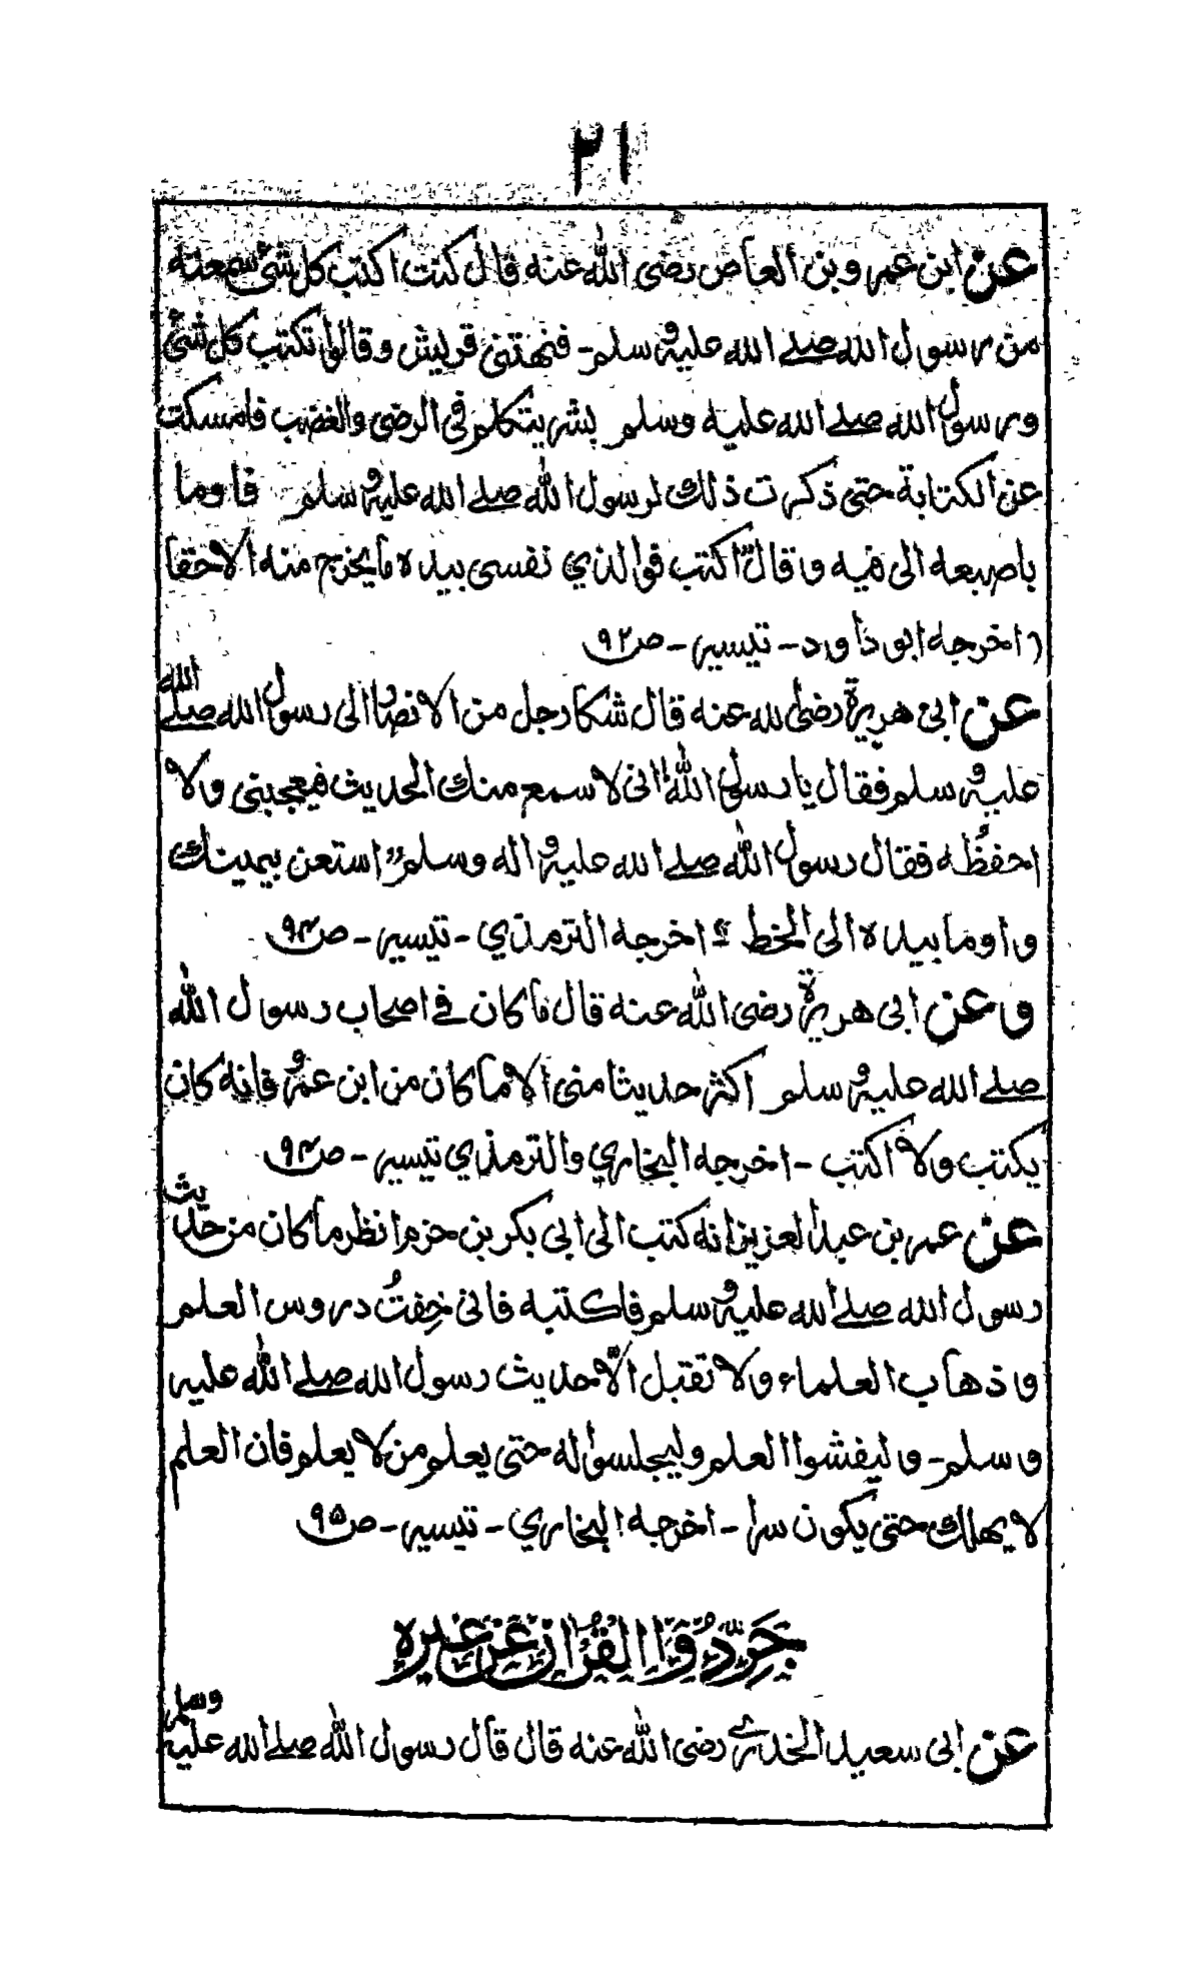 ٢١
عن ابن عمر وبن العاص رضى الله عنه قال كنت اكتب كل شئ سمعته
من رسول الله صلے الله عليہ وسلم۔ فنهتنى قريش وقالوا تكتب كل شئ
ورسول الله صلے الله عليه وسلم بشر يتكلم فى الرضى والغضب فامسكت
عن الكتابة حتى ذكرت ذلك لرسول الله صلے الله عليہ وسلم فاوما
باصبعه الى فيه وقال" اكتب فوالذي نفسى بيده ما يخرج منه الا حقا
(اخرجه ابو داود۔ تيسير۔ ص ٩٢
عن ابى هريرة رضى لله عنه قال شكا رجل من الانصار الى رسول الله صلے الله
عليہ وسلم فقال يا رسول الله" انى لا سمع منك الحديث فيعجبنى ولا
احفظُه فقال رسول الله صلے الله عليہ واله وسلم" استعن بيمينك
واوما بيده الى الخط" اخرجه الترمذي۔ تيسير۔ ص ٩٤
وعن ابى هريرة رضى الله عنه قال ما كان فے اصحاب رسول الله
صلے الله عليہ وسلم اكثر حديثا منى الا ما كان من ابن عمرو فانه كان
يكتب ولا اكتب۔ اخرجه البخاري والترمذي تيسير۔ ص ٩٤
عن عمر بن عبد العزيز انه كتب الى ابى بكر بن حزم انظر ما كان من حديث
رسول الله صلے الله عليہ وسلم فاكتبه فانى خِفتُ دروس العلم
وذهاب العلماء ولا تقبل الّا حديث رسول الله صلے الله عليه
وسلم۔ وليفشوا العلم وليجلسوا له حتى يعلم من لا يعلم فان العلم
لا يهلك حتى يكون سرا۔ اخرجه البخاري۔ تيسير۔ ص ٩٥
جَرِّدُوا القُرْانَ عَنْ غَيْرِهِ
عن ابى سعيد الخدرے رضى الله عنه قال قال رسول الله صلے الله عليه وسلم